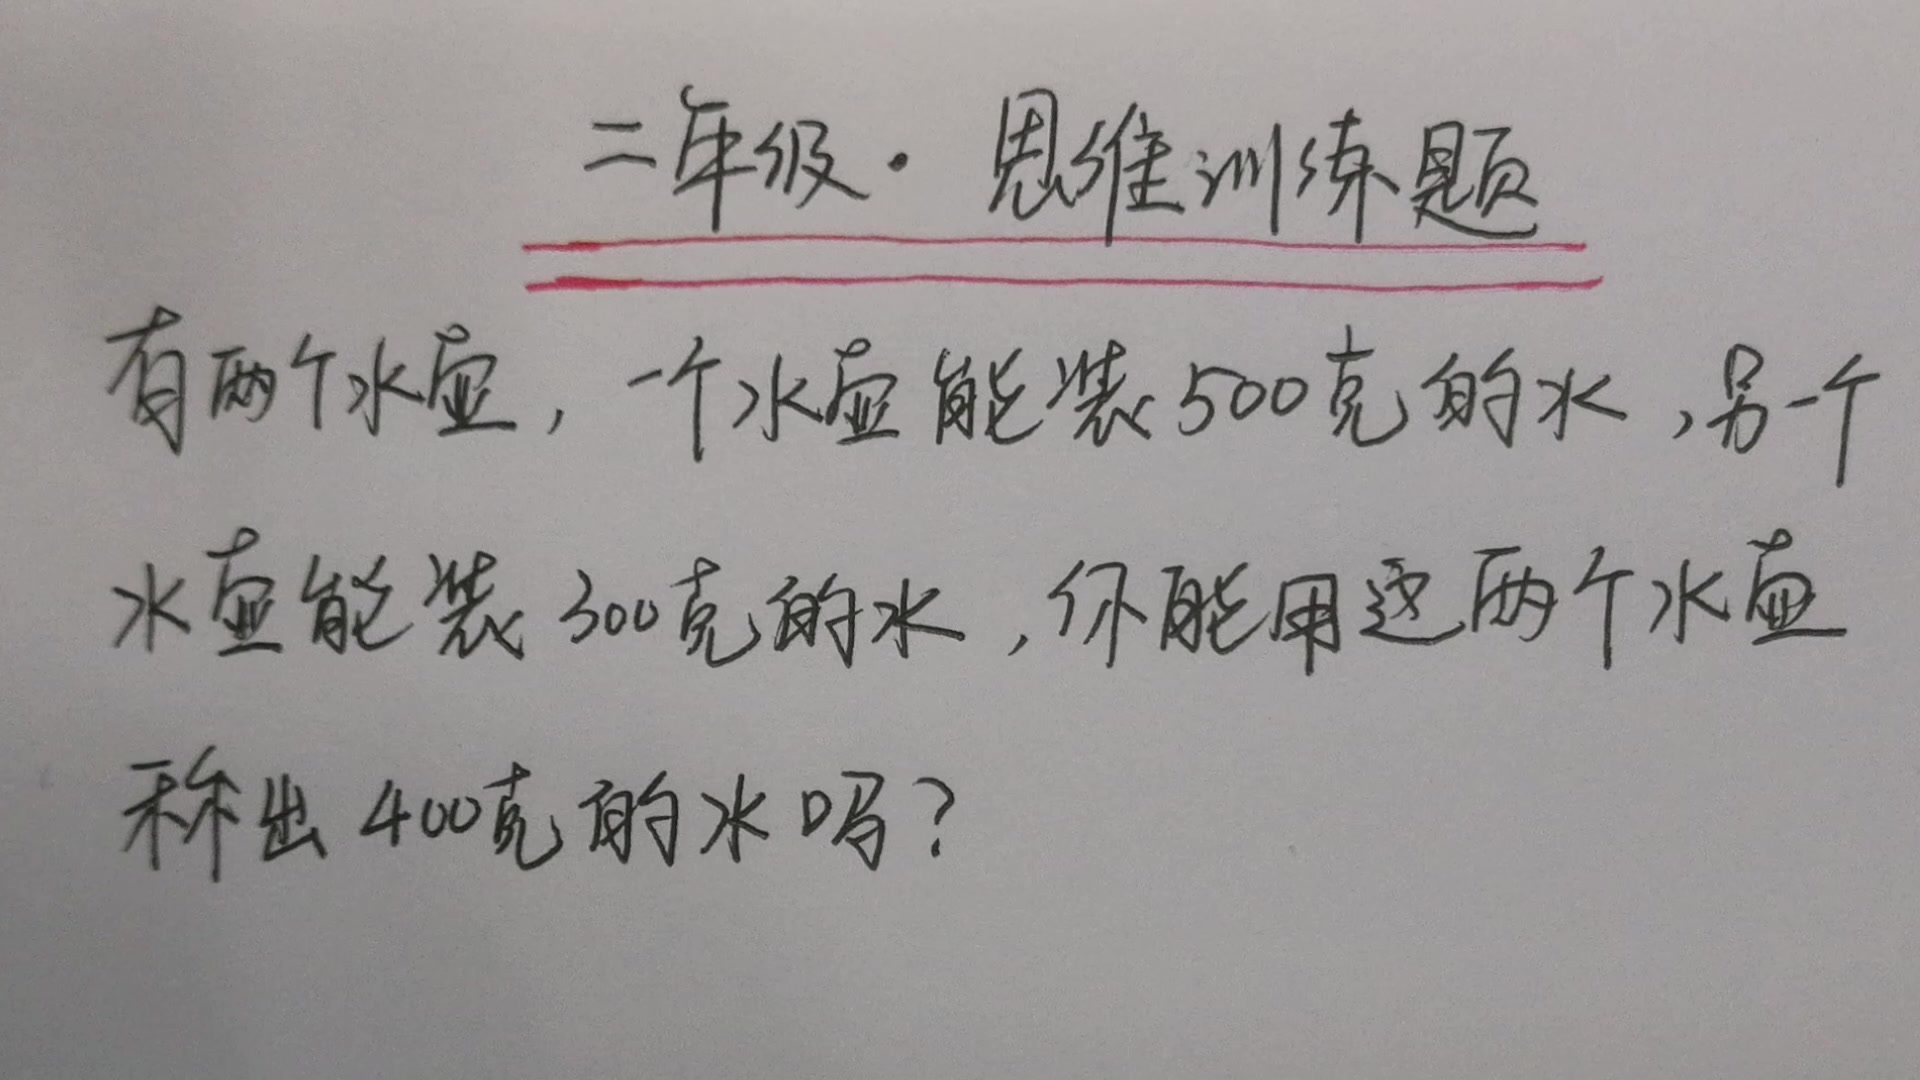 二年级·思维训练题
有两个水壶，一个水壶能装500克的水，另一个
水壶能装300克的水，你能用这两个水壶
称出400克的水吗？